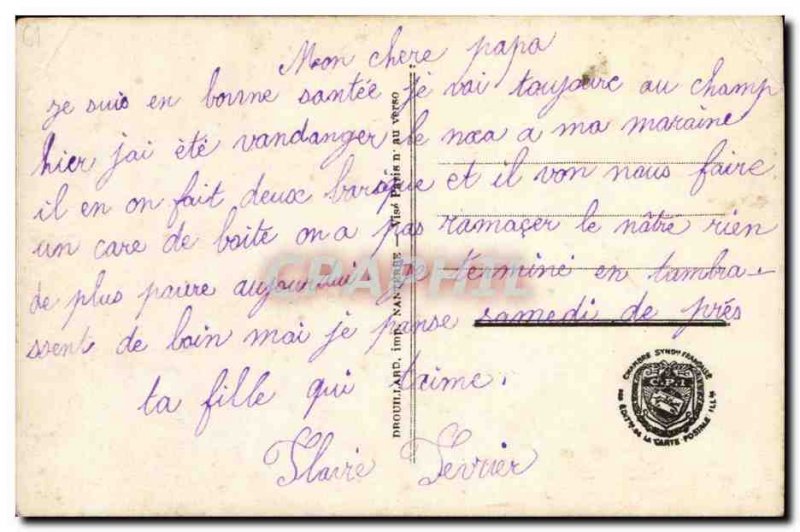 61
Mon chere papa
je suis en bonne santée je vai toujours au champ
hier jai été vandanger le noa a ma maraine
il en on fait deux barique et il von nous faire
un care de boite on a pas ramaçer le nâtre rien
de plus paure aujourdhui je terminé en tambra-
ssent de loin moi je panse samedi de prés
ta fille qui t'aime.
Février
DROUILLARD, imp. NANTERRE — Visé Paris n° au verso
CHAMBRE SYNDle FRANÇAISE
C.P.I
DES EDITrs DE LA CARTE POSTALE ILLée
CPAPHIL